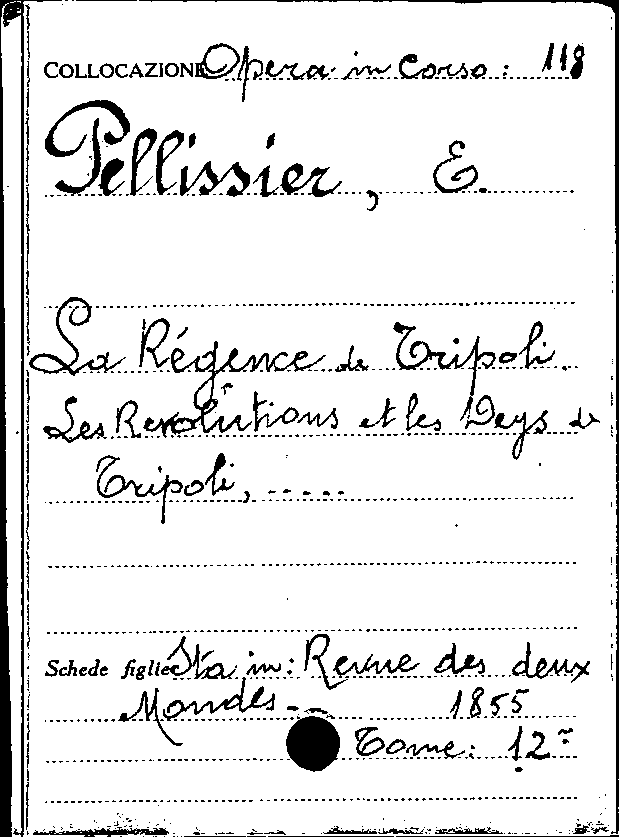 COLLOCAZIONE Opera in corso: 118
Pellissier, E.
La Régence de Tripoli.
Les Revolutions et les Deys de
Tripoli, .....
Schede figlie Sta in: Revue des deux
Mondes -- 1855
Tome: 12